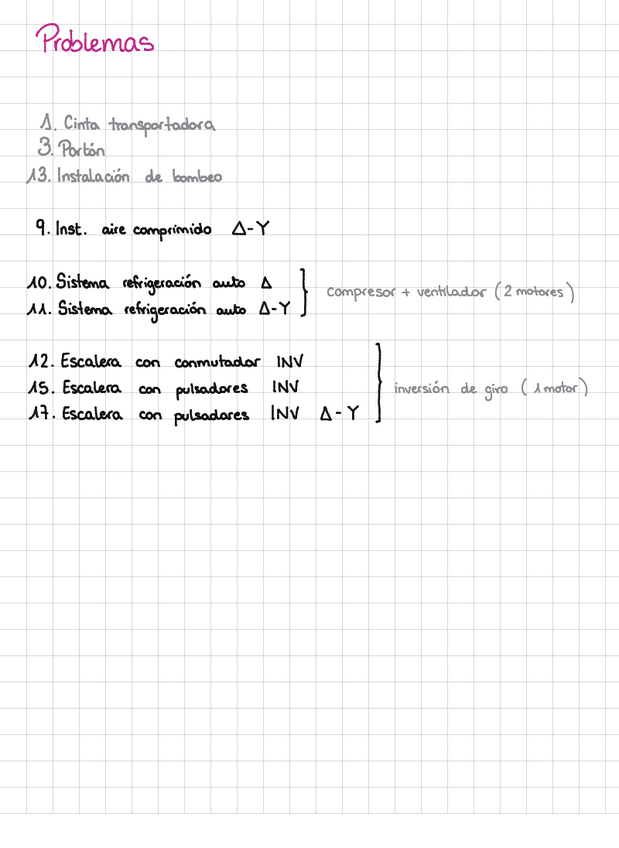 Problemas
1. Cinta transportadora
3. Portón
13. Instalación de bombeo
9. Inst. aire comprimido Δ-Y
10. Sistema refrigeración auto Δ
compresor + ventilador (2 motores)
11. Sistema refrigeración auto Δ-Y
12. Escalera con conmutador INV
15. Escalera con pulsadores INV
inversión de giro (1 motor)
17. Escalera con pulsadores INV Δ-Y